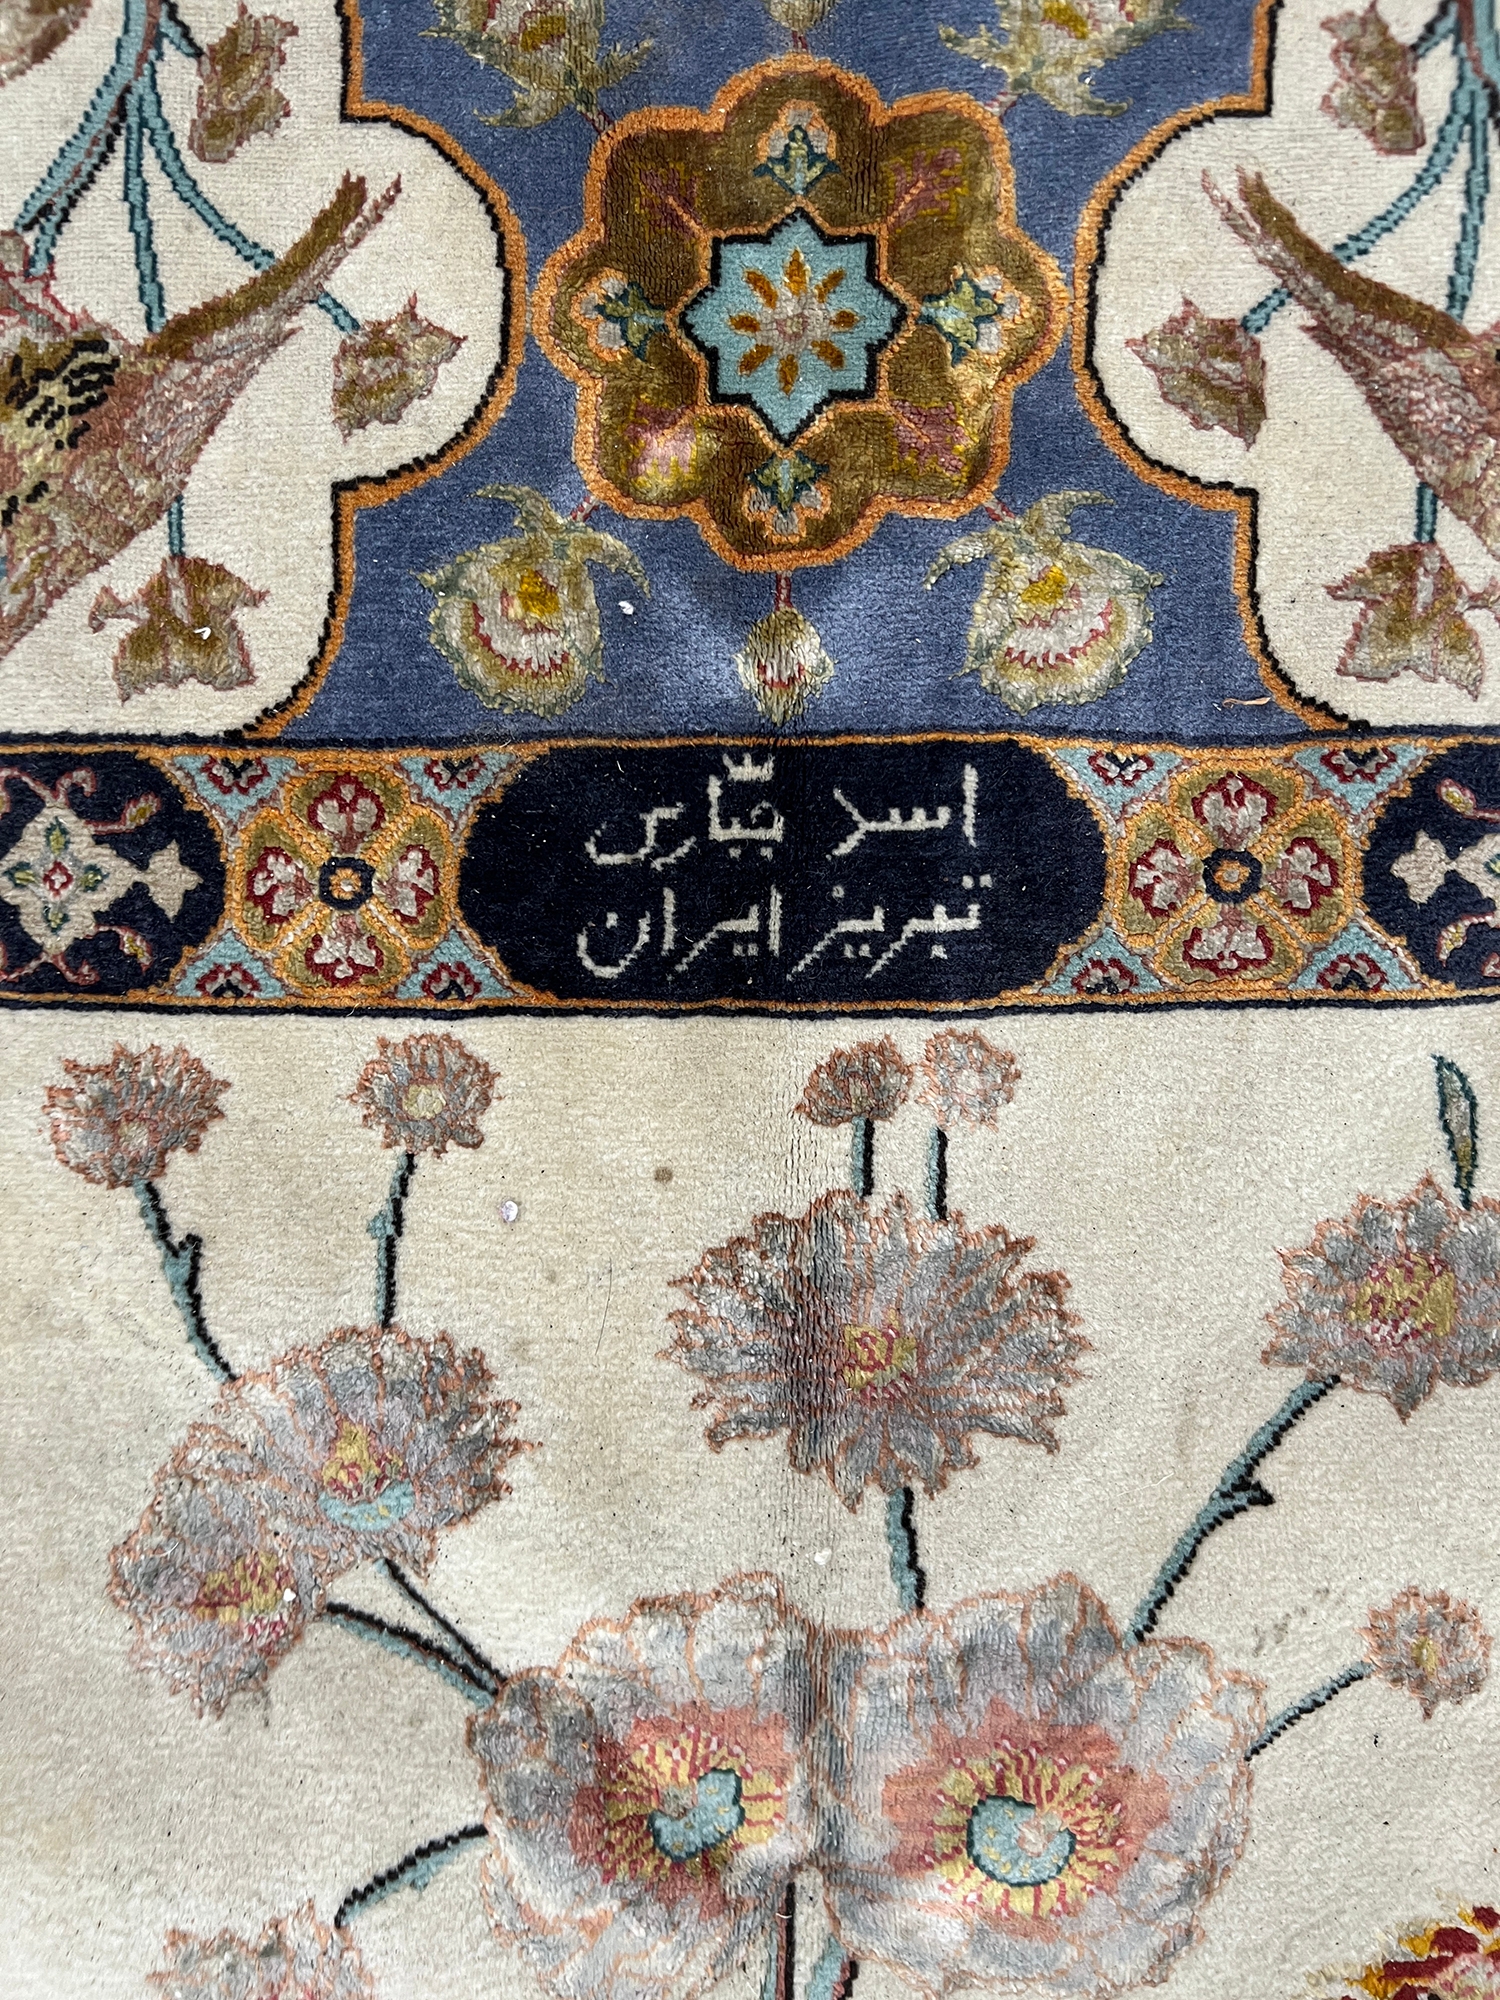 اسد جبّاری
تبریز ایران